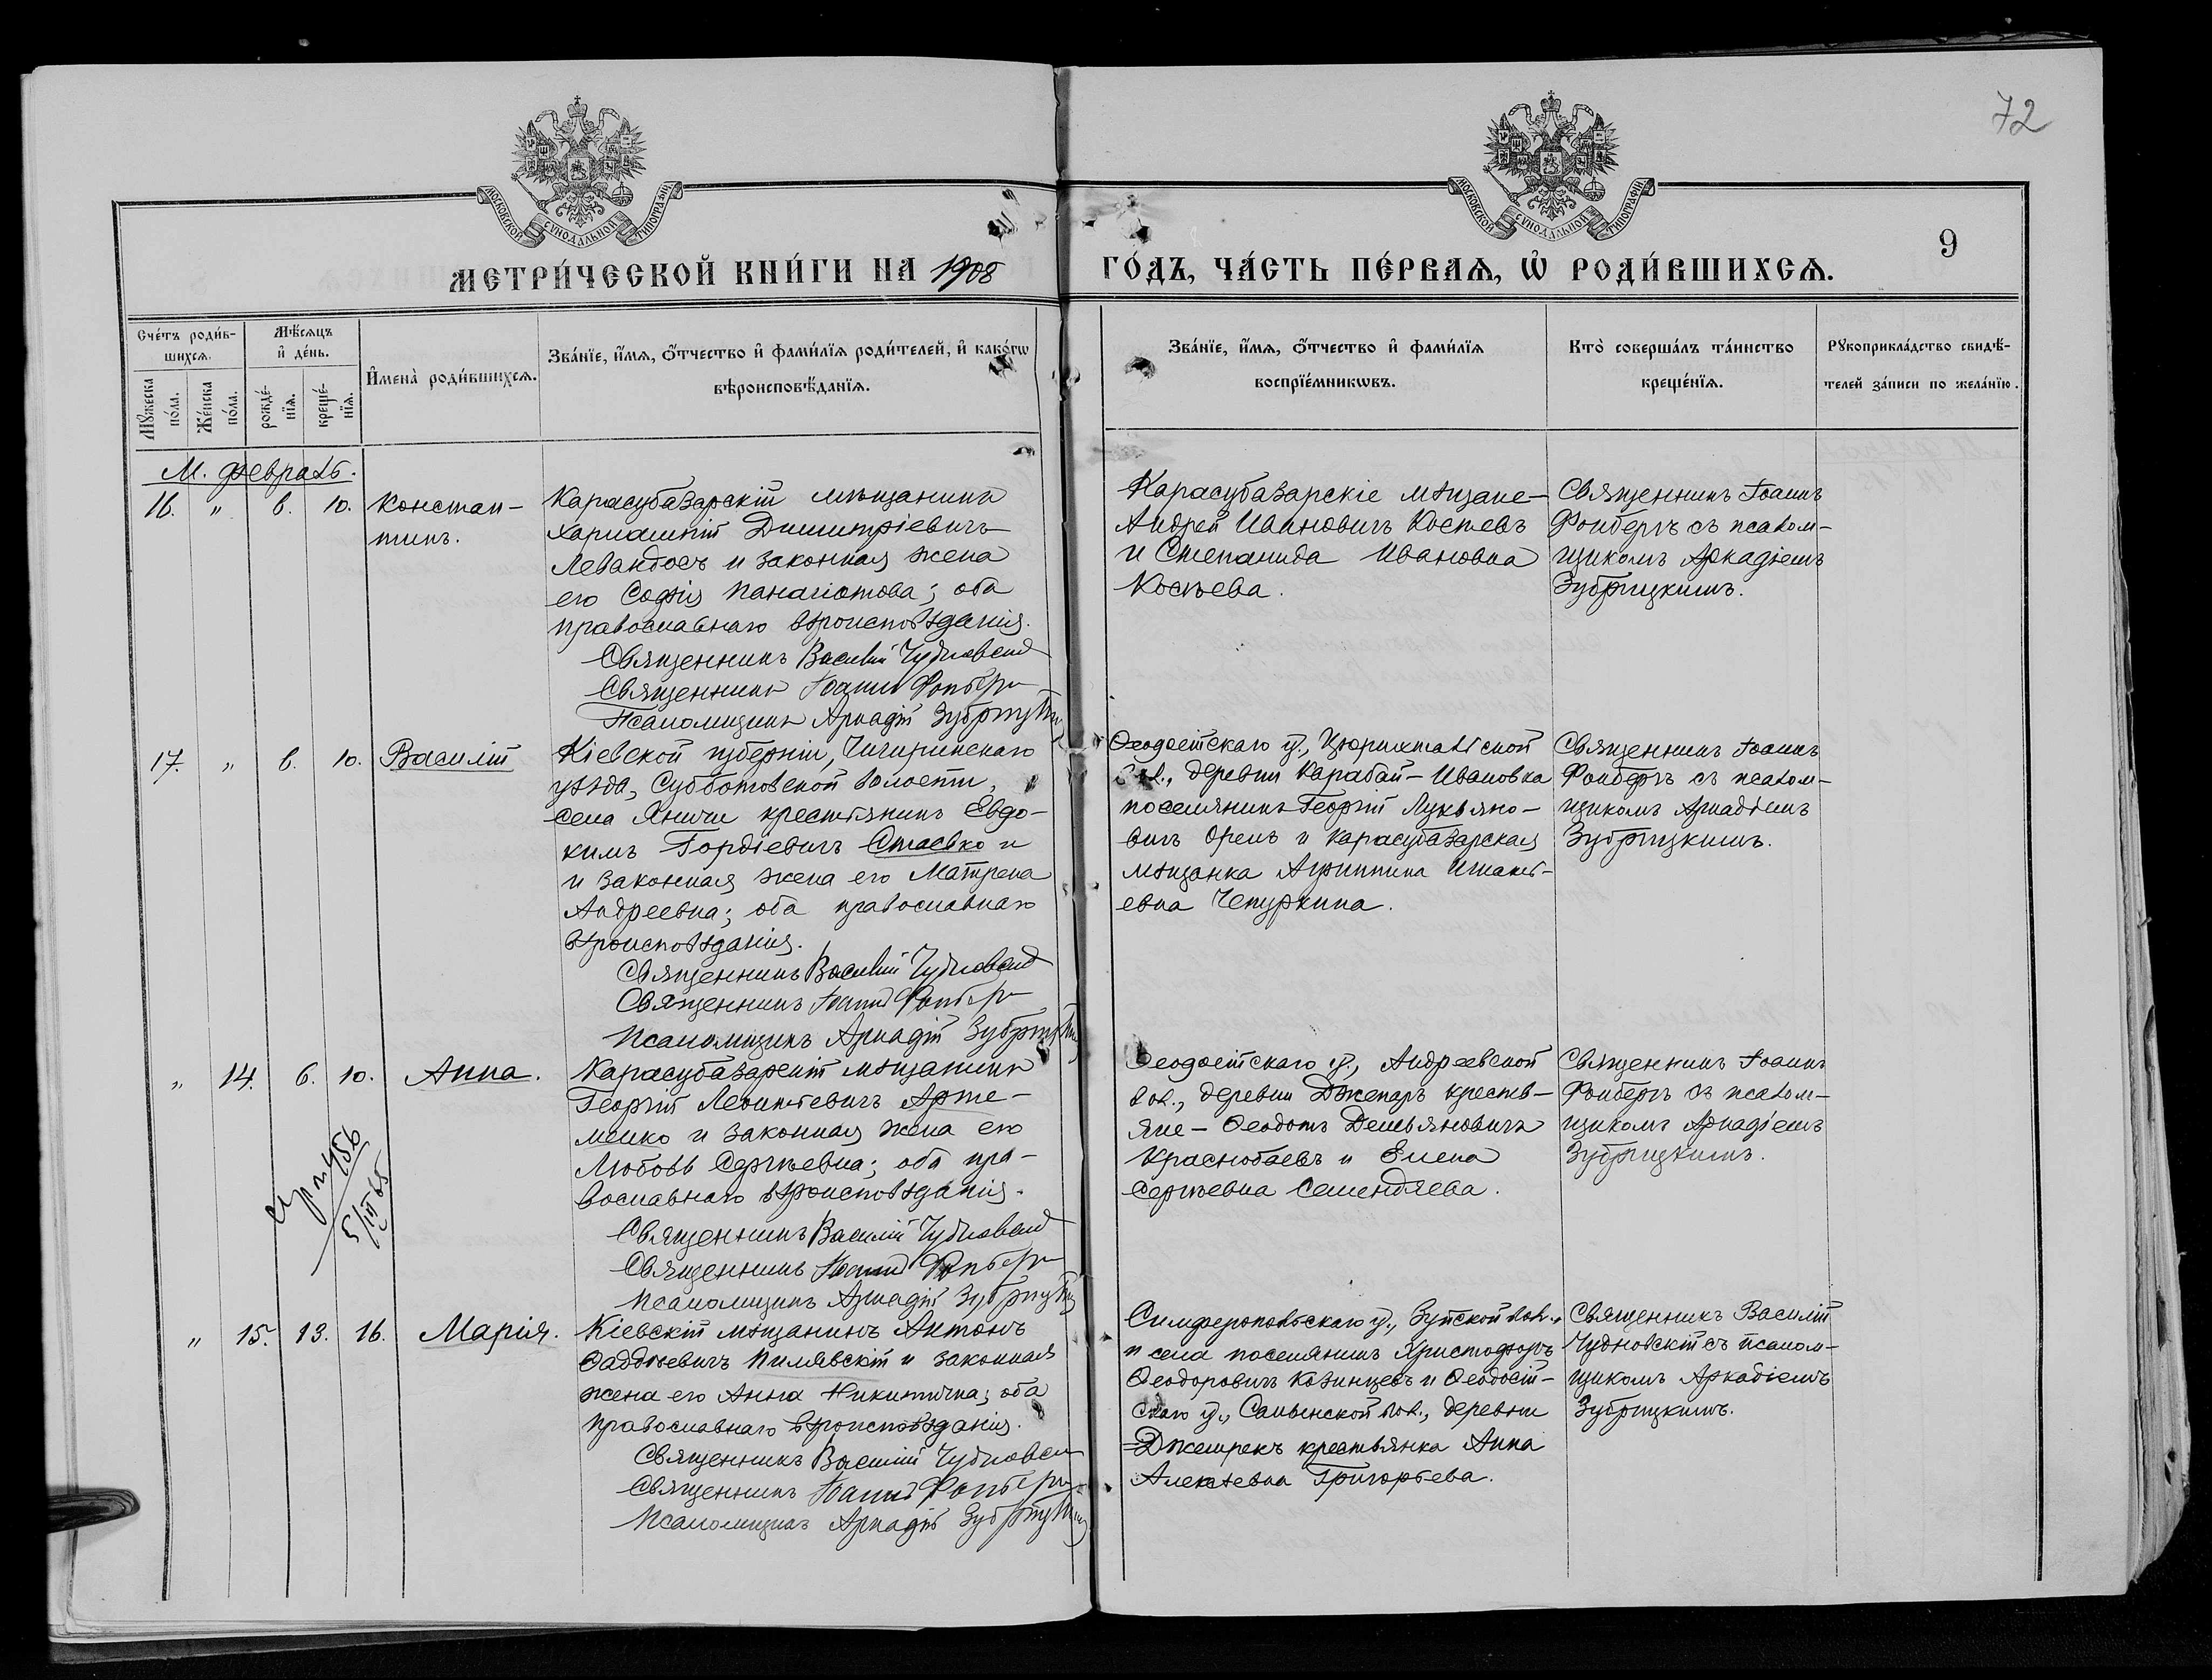 72
МОСКОВСКОЙ СѴНОДАЛЬНОЙ ТИПОГРАФІИ
МОСКОВСКОЙ СѴНОДАЛЬНОЙ ТИПОГРАФІИ
9
МЕТРИ́ЧЕСКОЙ КНИ́ГИ НА 1908 ГО́ДЪ, ЧА́СТЬ ПЕ́РВАѦ, Ѡ҆ РОДИ́ВШИХСѦ.
Сче́тъ роди́в-
шихсѧ.
Мꙋ́жеска по́ла.
Же́нска по́ла.
Мѣ́сѧцъ
и҆ де́нь.
рожде́-
нїѧ.
креще́-
нїѧ.
И҆мена̀ роди́вшихсѧ.
Зва́нїе, и҆́мѧ, ѻ҆́тчество и҆ фами́лїѧ роди́телей, и҆ како́гѡ
вѣроисповѣ́данїѧ.
Зва́нїе, и҆́мѧ, ѻ҆́тчество и҆ фами́лїѧ
воспрїе́мникѡвъ.
Кто̀ соверша́лъ та́инство
креще́нїѧ.
Рꙋкоприкла́дство свидѣ́-
телей за́писи по жела́нїю.
М. февраль.
16. " 6. 10. Констан-
тинъ.
Карасубазарскій мѣщанинъ
Харлампій Димитріевичъ
Левандосъ и законная жена
его Софія Панагіотова; оба
православнаго вѣроисповѣданія.
Священникъ Василій Чудновскій
Священникъ Іоаннъ Фонберъ
Псаломщикъ Аркадій Зубрицкій
Карасубазарскіе мѣщане-
Андрей Ивановичъ Костевъ
и Степанида Ивановна
Костева.
Священникъ Іоаннъ
Фонберъ съ псалом-
щикомъ Аркадіемъ
Зубрицкимъ.
17. " 6. 10. Василій
Кіевской губерніи, Чигиринскаго
уѣзда, Субботовской волости,
села Яничи крестьянинъ Евдо-
кимъ Гордіевичъ Стаевко и
и законная жена его Матрена
Андреевна; оба православнаго
вѣроисповѣданія.
Священникъ Василій Чудновскій
Священникъ Іоаннъ Фонберъ
Псаломщикъ Аркадій Зубрицкій
Ѳеодосійскаго у., Цюрихтальской
вол., деревни Карабай-Ивановка
поселянинъ Георгій Лукьяно-
вичъ Орелъ и карасубазарская
мѣщанка Агриппина Игнать-
евна Чепуркина.
Священникъ Іоаннъ
Фонберъ съ псалом-
щикомъ Аркадіемъ
Зубрицкимъ.
" 14. 6. 10. Анна.
5/III 65
Карасубазарскій мѣщанинъ
Георгій Леонтьевичъ Арте-
менко и законная жена его
Любовь Сергѣевна; оба пра-
вославнаго вѣроисповѣданія.
Священникъ Василій Чудновскій
Священникъ Іоаннъ Фонберъ
Псаломщикъ Аркадій Зубрицкій
Ѳеодосійскаго у., Андреевской
вол., деревни Джепаръ крестья-
яне - Ѳеодотъ Демьяновичъ
Краснобаевъ и Елена
Сергѣевна Семендяева.
Священникъ Іоаннъ
Фонберъ съ псалом-
щикомъ Аркадіемъ
Зубрицкимъ.
" 15. 13. 16. Марія.
Кіевскій мѣщанинъ Антонъ
Ѳаддѣевичъ Пилявскій и законная
жена его Анна Никитична; оба
православнаго вѣроисповѣданія.
Священникъ Василій Чудновскій
Священникъ Іоаннъ Фонберъ
Псаломщикъ Аркадій Зубрицкій
Симферопольскаго у., Зуйской вол.,
и села поселянинъ Христофоръ
Ѳеодоровичъ Казинцевъ и Ѳеодосій-
скаго у., Салынской вол., деревни
Джемрекъ крестьянка Анна
Алексѣевна Григорьева.
Священникъ Василій
Чудновскій съ псалом-
щикомъ Аркадіемъ
Зубрицкимъ.